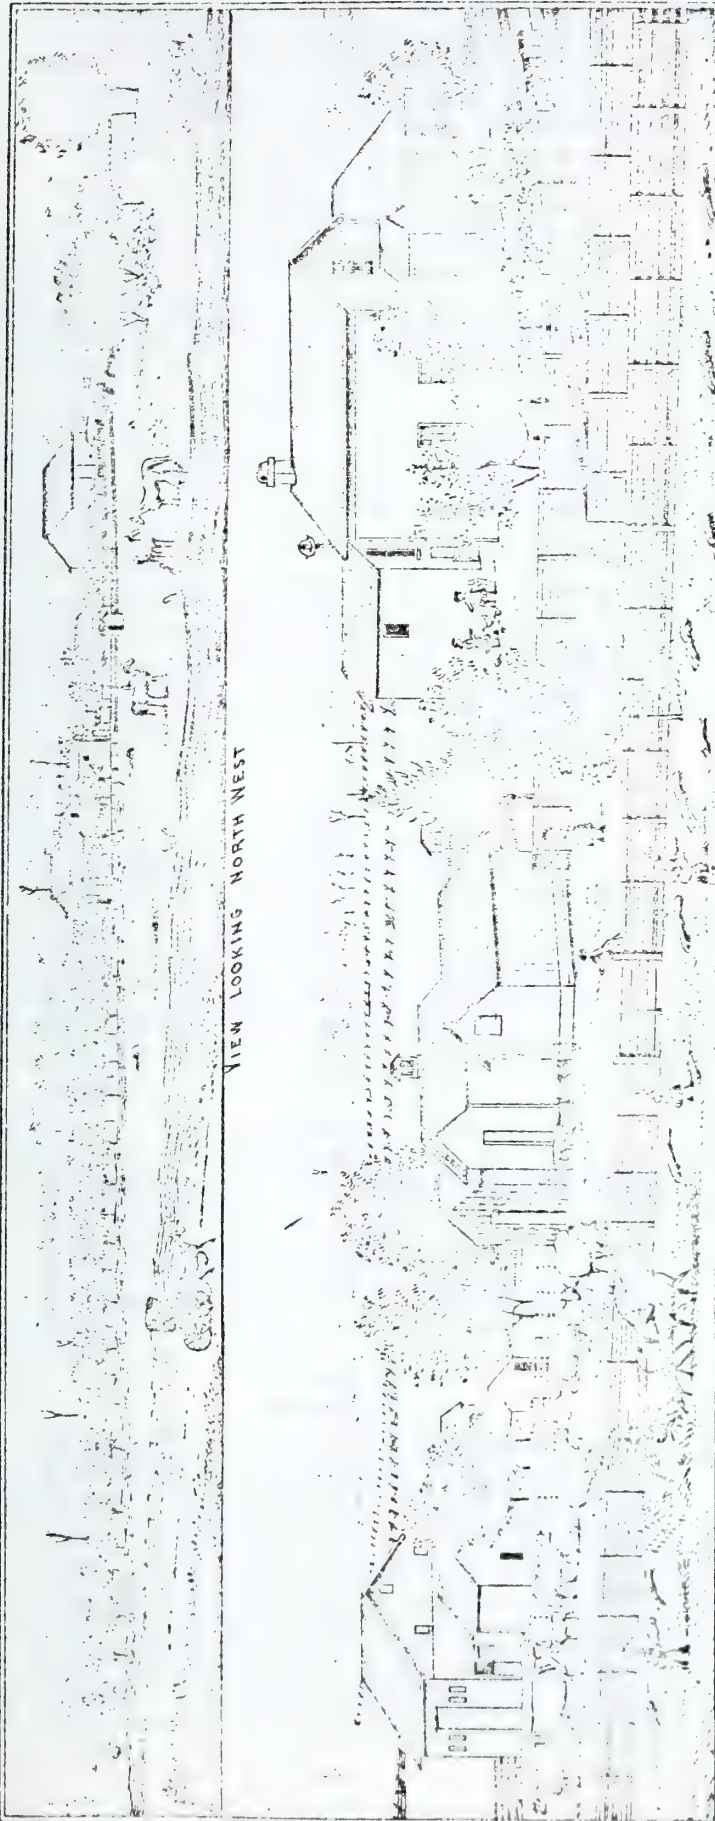 VIEW LOOKING NORTH WEST